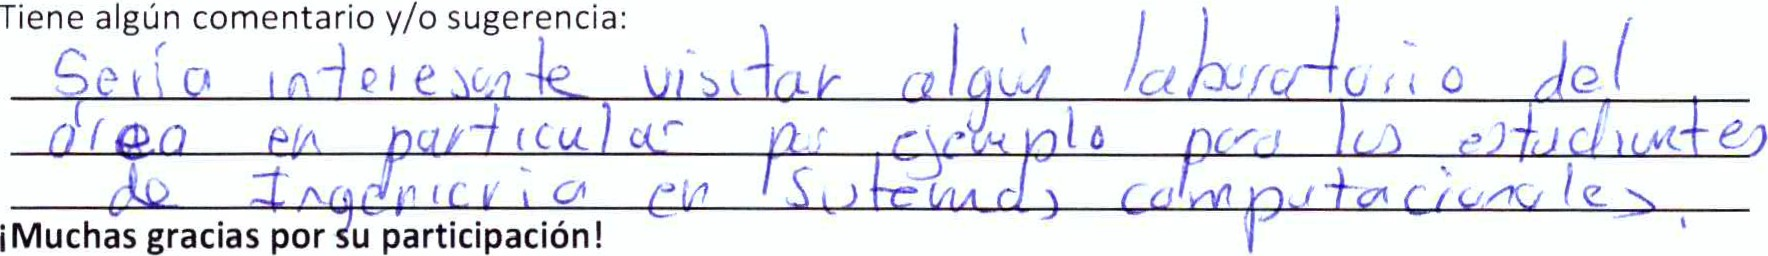 Tiene algún comentario y/o sugerencia:
Sería interesante visitar algún laboratorio del
área en particular por ejemplo para los estudiantes
de Ingeniería en Sistemas computacionales.
¡Muchas gracias por su participación!